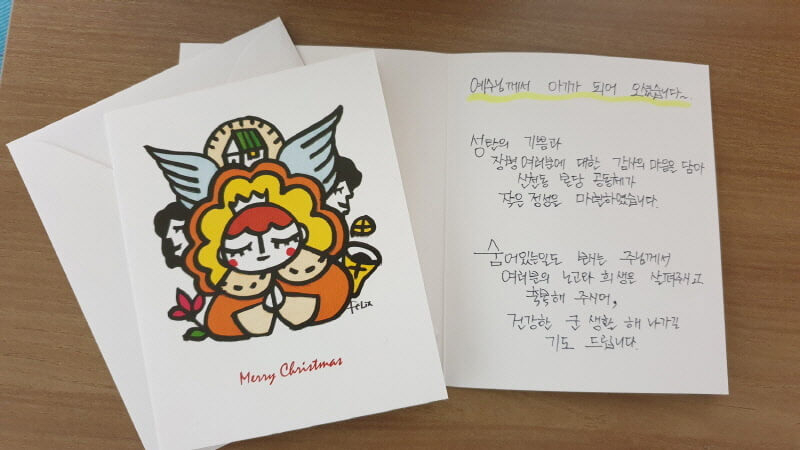 Felix
Merry Christmas
예수님께서 아기가 되어 오셨습니다~.
성탄의 기쁨과
장병여러분에 대한 감사의 마음을 담아
산천동 본당 공동체가
작은 정성을 마련하였습니다.
숨어있는일도 보시는 주님께서
여러분의 노고와 희생을 살펴주시고
축복해 주시며,
건강한 군 생활 해 나가길
기도 드립니다.